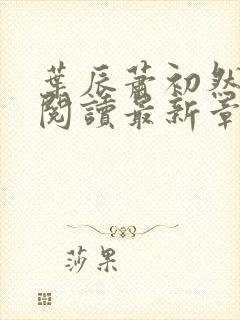 葉辰蕭初然
閱讀最新章
莎果